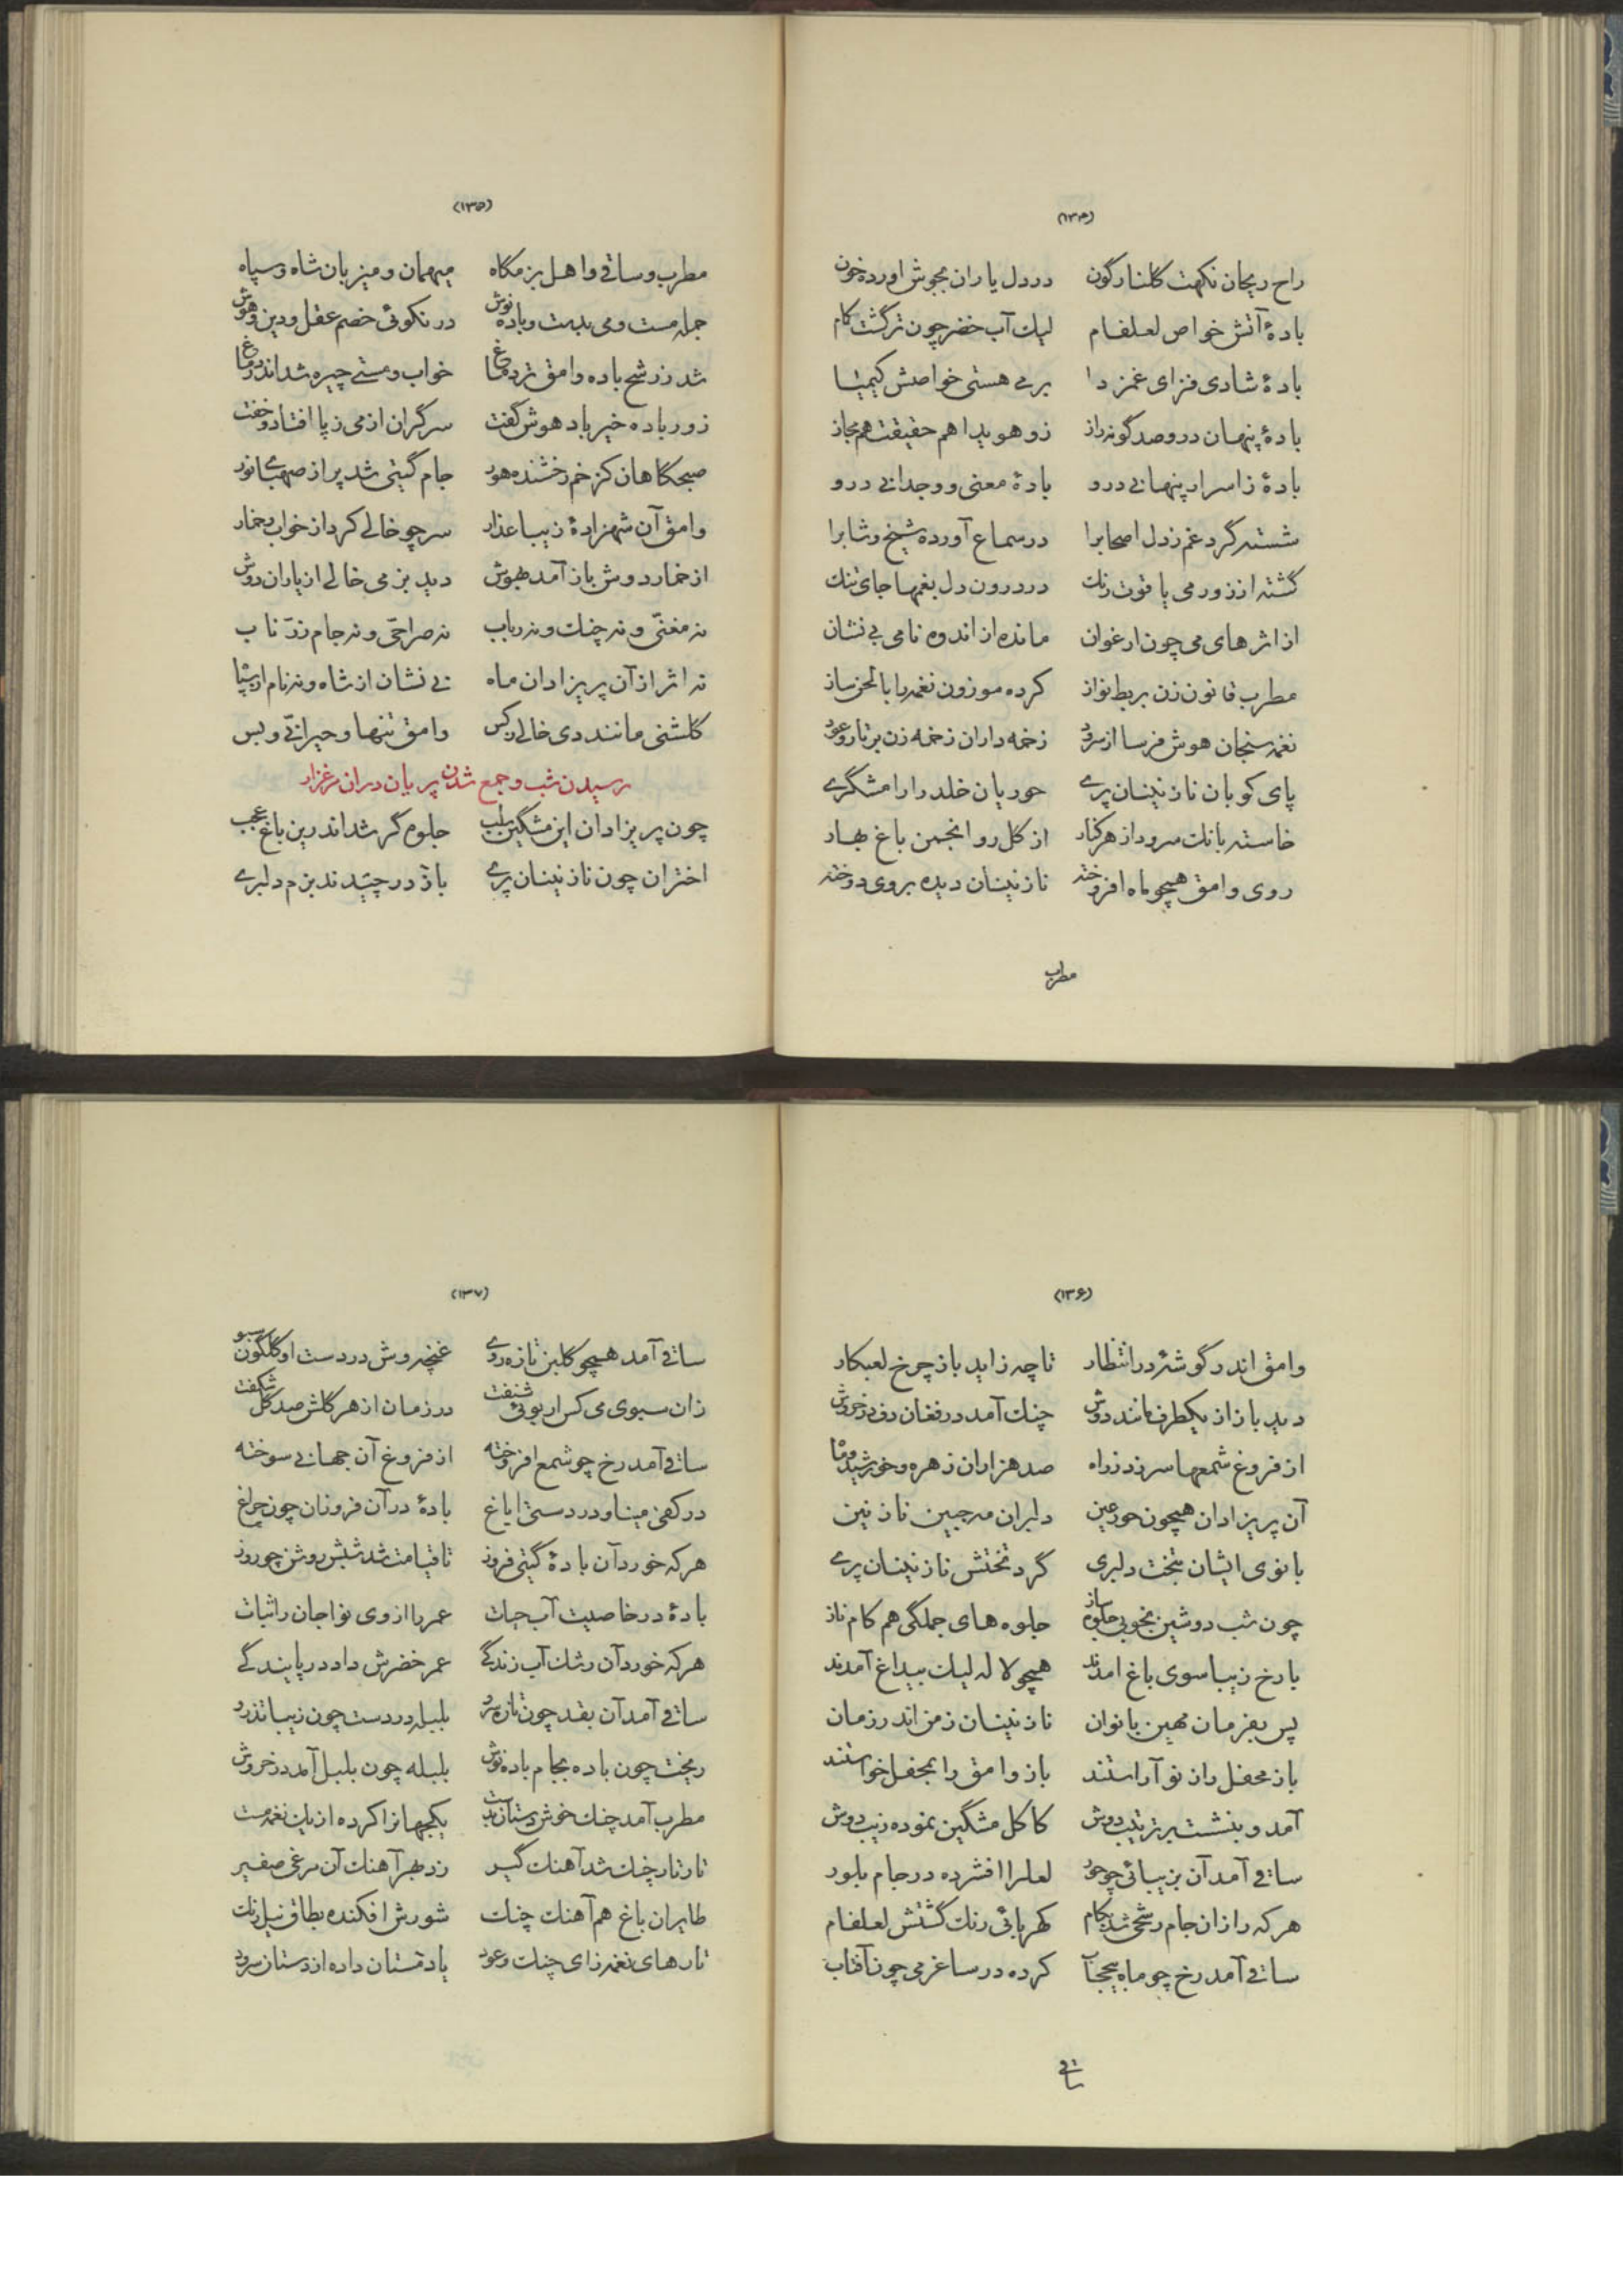 (۱۳۴)
راح ریحان نکهت کلنار کون دردل یاران بجوش اورده خون
بادهٔ آتش خواص لعلفام لیك آب خضر چون ترگشت کام
بادهٔ شادی فزای غمزدا بر مس هستی خواصش کیمیا
بادهٔ پنهان درو صد کونه راز زو هویدا هم حقیقت هم مجاز
بادهٔ زاسرار پنهانے درو بادهٔ معنی و وجدانے درو
شسته گرد غم ز دل اصحابرا درسماع آورده شیخ و شابرا
کشته از زور می یاقوت رنك در درون دل بغمها جای تنك
از اثرهای می چون ارغوان مانده از اندوه نامی بی نشان
مطرب قانون زن بربط نواز کرده موزون نغمه را با لحن ساز
نغمه سنجان هوش فرسا از سرود زخمه داران زخمه زن بر تار و عود
پای کوبان نازنینان پرے حوریان خلد را رامشکرے
خاسته بانك سرود از هر کنار از کل رو انجمن باغ بهار
روی وامق همچو ماه افروخته نازنینان دیده بروی دوخته
مطرب
(۱۳۵)
مطرب و ساقے و اهل بزمکاه میهمان و میزبان شاه و سپاه
جمله مست و می بدست و باده نوش در نکوئی خصم عقل و دین و هوش
شد ز رشح باده وامق تر دماغ خواب و مستے چیره شد اندر دماغ
زور باده خیرباد هوش کفت سرکران از می ز پا افتاد و خفت
صبحکاهان کز خم رخشنده هور جام کیتی شد پر از صهبای نور
وامق آن شهزادهٔ زیبا عذار سر چو خالے کرد از خواب و خمار
از خمار دوش باز آمد بهوش دید بزمی خالے از یاران دوش
نه مغنّی و نه چنك و نه رباب نه صراحی و نه جام زرّ ناب
نه اثر از آن پریزادان ماه نے نشان از شاه و نه نام از سپاه
کلشنی مانند دی خالے ز کس وامق تنها و حیرانے و بس
رسیدن شب و جمع شدن پریان دران مرغزار
چون پریزادان این مشکین سلب جلوه کر شد اندرین باغ عجب
اختران چون نازنینان پرے باز در چیدند بزم دلبرے
(۱۳۶)
وامق اندر گوشهٔ در انتظار تا چه زاید باز چرخ لعبکار
دید باز از یکطرف مانند دوش چنك آمد در فغان دف در خروش
از فروغ شمعها سر زد ز راه صد هزاران زهره و خورشید و ماه
آن پریزادان همچون حور عین دلبران مه جبین نازنین
بانوی ایشان بتخت دلبری گرد تختش نازنینان پرے
چون شب دوشین بخوبی جلوه ساز جلوه های جملگی هم کام ناز
با رخ زیبا سوی باغ امدند همچو لاله لیك بیداغ آمدند
پس بفرمان مهین بانوان نازنینان زمن اندر زمان
باز محفل را ز نو آراستند باز وامق را بمحفل خواستند
آمد و بنشست بر ترتیب دوش کاکل مشگین نموده زیب دوش
ساقے آمد آن بزیبائی چو حور لعلرا افشرده در جام بلور
هر که را زان جام رشحی شد بکام کهربائی رنك کشتش لعلفام
ساقے آمد رخ چو ماه بیحجاب کرده در ساغر می چون آفتاب
ساقے
(۱۳۷)
ساقے آمد همچو کلبن تازه روے غنچه وش در دست او کلگون سبو
زان سبوی می کس ار بوئی شنفت در زمان از هر کلش صد کل شکفت
ساقے آمد رخ چو شمع افروخته از فروغ آن جهانے سوخته
در کفی مینا و در دستی ایاغ بادهٔ در آن فروزان چون چراغ
هر که خورد آن بادهٔ گیتی فروز تا قیامت شد شبش روشن چو روز
بادهٔ در خاصیت آب حیات عمر را از وی نوا جان را ثبات
هر که خورد آن رشك آب زندگے عمر خضرش داد در پایندگے
ساقے آمد آن بقد چون تازه سرو بلبله در دست چون زیبا تذرو
ریخت چون باده بجام باده نوش بلبله چون بلبل آمد در خروش
مطرب آمد چنك خوش دستان بدست یکجهانرا کرده از یك نغمه مست
تار تار چنك شد آهنك گیر زد بهر آهنك آن مرغی صفیر
طایران باغ هم آهنك چنك شورش افکنده بطاق نیل رنك
تارهای نغمه زای چنك و عود یاد مستان داده از دستان سرود